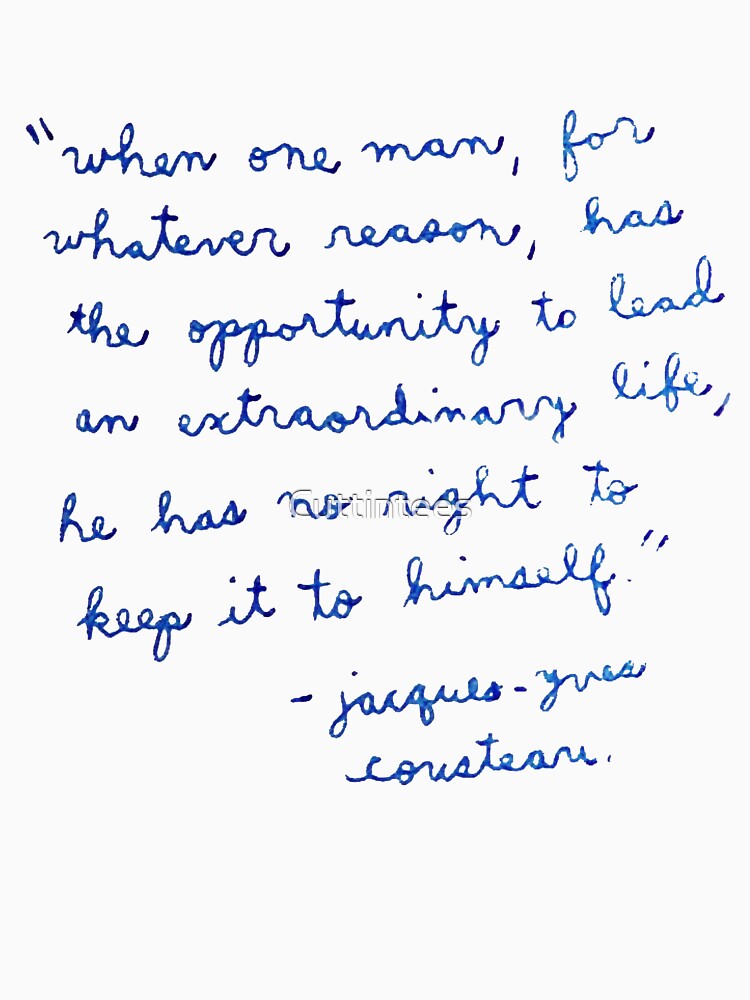 "when one man, for
whatever reason, has
the opportunity to lead
an extraordinary life,
he has no right to
Cuttintees
keep it to himself."
- jacques-yves
cousteau.